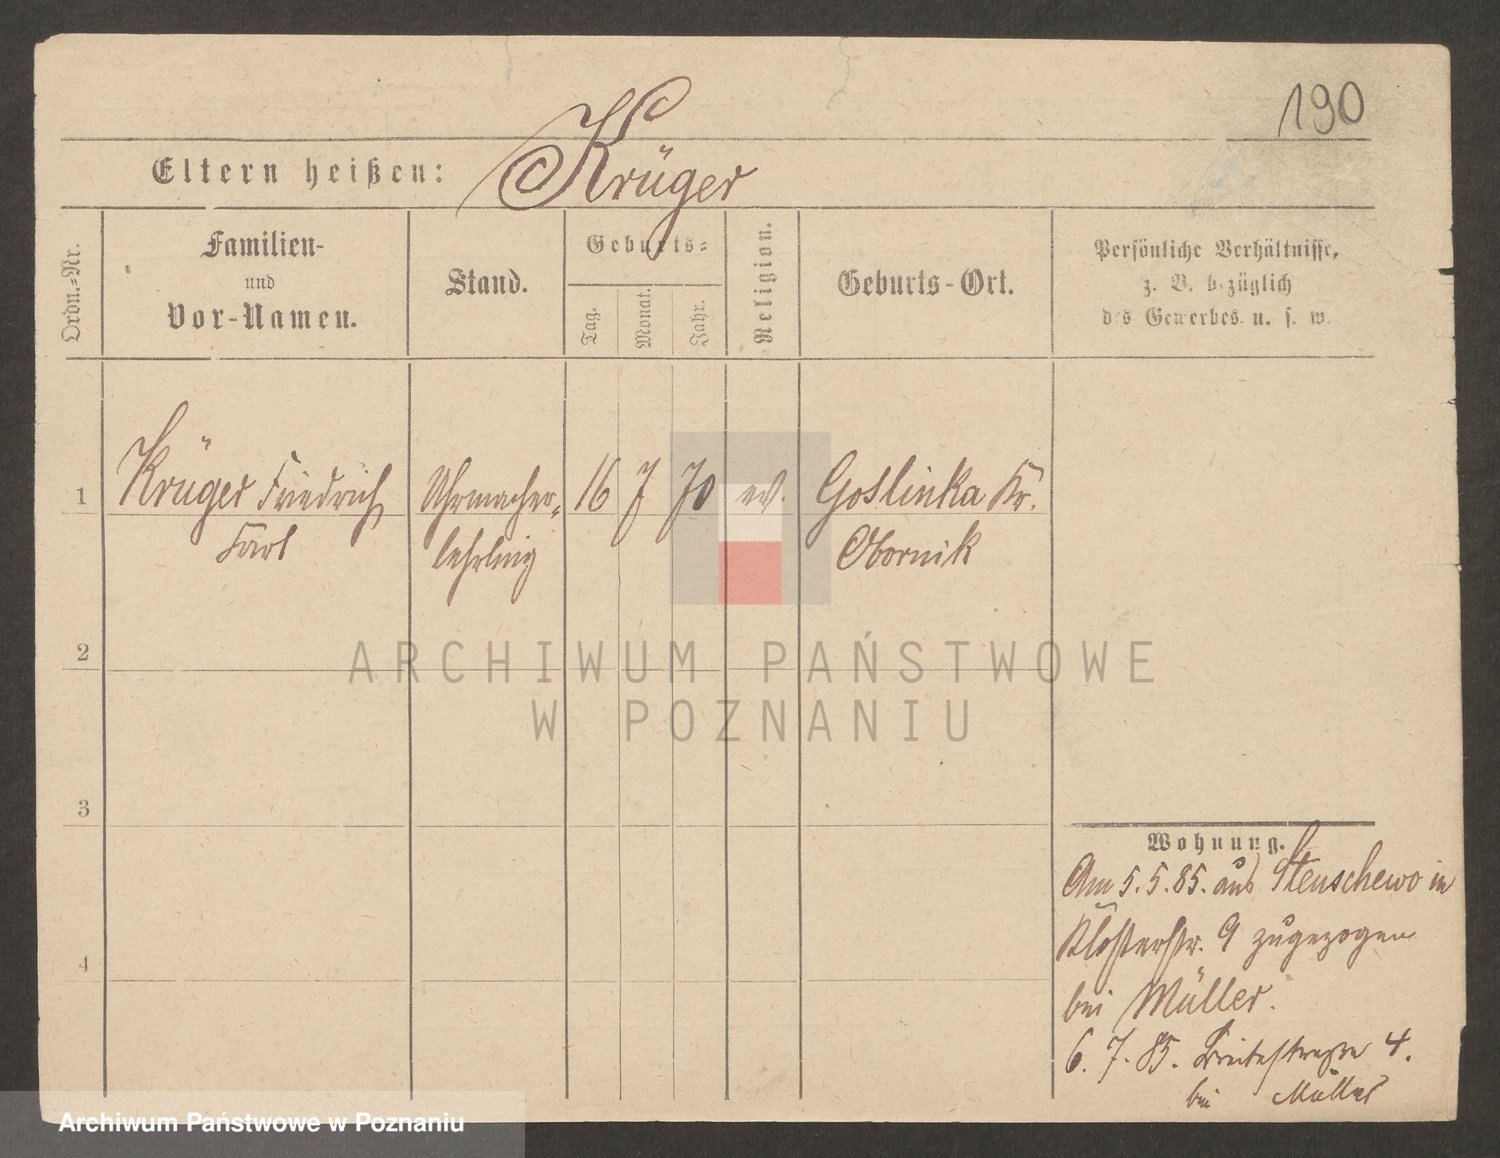 190
Eltern heißen: Krüger
Ordn.-Nr.
Familien-
und
Vor-Namen.
Stand.
Geburts-
Tag.
Monat.
Jahr.
Religion.
Geburts-Ort.
Persönliche Verhältnisse,
z. B. bezüglich
des Gewerbes u. s. w.
1 Krüger Friedrich Uhrmacher- 16 7 70 ev. Goslinka Kr.
Karl lehrling Obornik
2
3
4
Wohnung.
Am 5.5.85. aus Stenschewo in
Klosterstr. 9 zugezogen
bei Müller.
6. 7. 85. Breitestraße 4.
bei Müller
ARCHIWUM PAŃSTWOWE
W POZNANIU
Archiwum Państwowe w Poznaniu